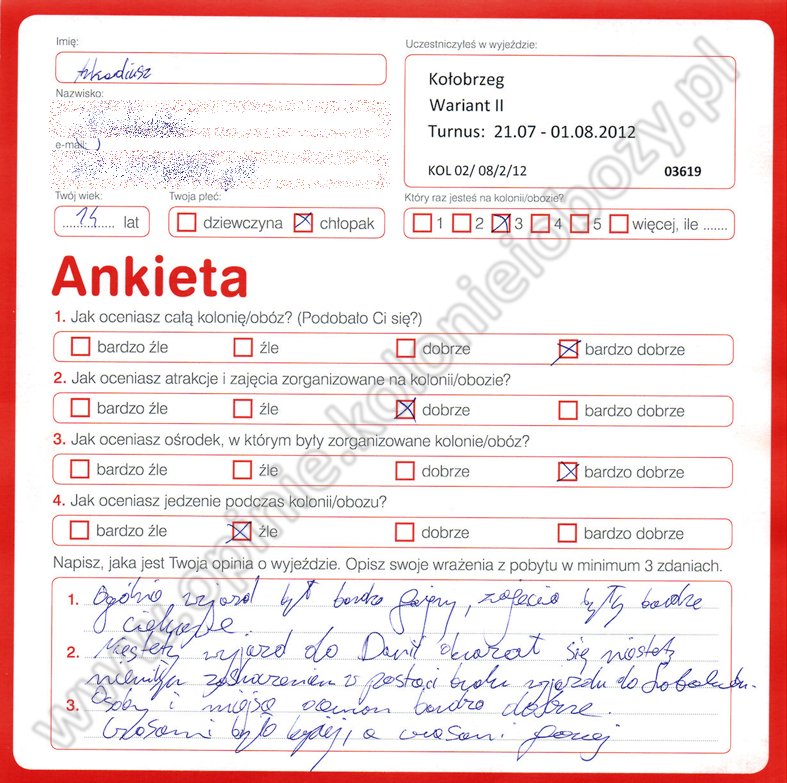 Imię:
Arkadiusz
Nazwisko:
e-mail:
Twój wiek:
14 lat
Twoja płeć:
dziewczyna chłopak
Uczestniczyłeś w wyjeździe:
Kołobrzeg
Wariant II
Turnus: 21.07 - 01.08.2012
KOL 02/ 08/2/12 03619
Który raz jesteś na kolonii/obozie?
1 2 3 4 5 więcej, ile .......
Ankieta
1. Jak oceniasz całą kolonię/obóz? (Podobało Ci się?)
bardzo źle źle dobrze bardzo dobrze
2. Jak oceniasz atrakcje i zajęcia zorganizowane na kolonii/obozie?
bardzo źle źle dobrze bardzo dobrze
3. Jak oceniasz ośrodek, w którym były zorganizowane kolonie/obóz?
bardzo źle źle dobrze bardzo dobrze
4. Jak oceniasz jedzenie podczas kolonii/obozu?
bardzo źle źle dobrze bardzo dobrze
Napisz, jaka jest Twoja opinia o wyjeździe. Opisz swoje wrażenia z pobytu w minimum 3 zdaniach.
1. Ogólnie wyjazd był bardzo fajny, zajęcia były bardzo
ciekawe
2. Niestety wyjazd do Danii okazał się niestety
w postaci braku wjazdu do
3. Osoby i miejsce oceniam bardzo dobrze.
Czasami było lepiej, a czasami gorzej
www.opinie.kolonieiobozy.pl